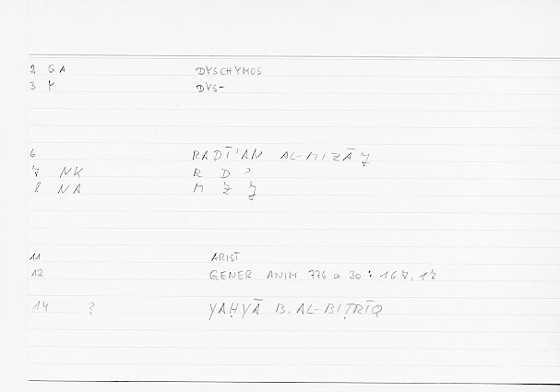 2 GA DYSCHYMOS
3 Y DYS-
6 RADĪʾAN AL-MIZĀǦ
7 NK R D ʾ
8 NA M Z Ǧ
11 ARIST
12 GENER ANIM 776 a 30 : 167,17
14 ? YAḤYĀ B. AL-BIṬRĪQ